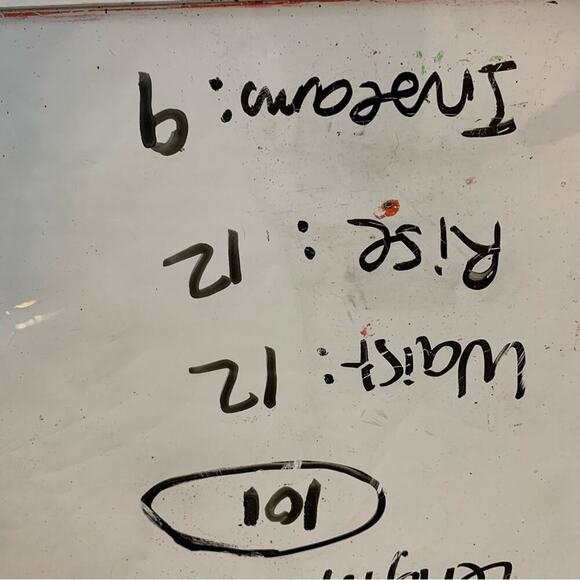 101
Waist: 12
Rise: 12
Inseam: 9